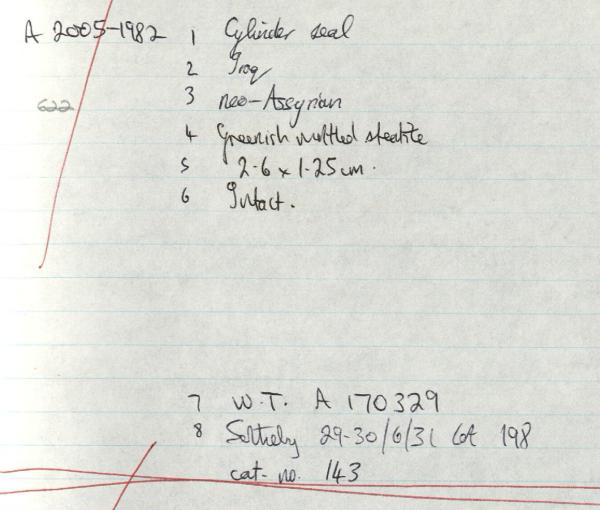 A 2005-1982 1 Cylinder seal
2 Iraq
622
3 neo-Assyrian
4 Greenish mottled steatite
5 2.6 x 1.25 cm.
6 Intact.
7 W.T. A 170329
8 Sotheby 29-30/6/31 Lot 198
cat. no. 143